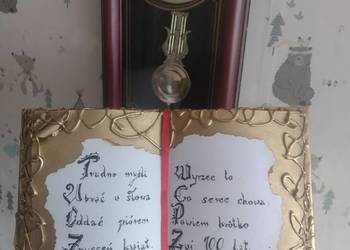 Trudno myśli
Ubrać w słowa
Oddać piórem
Zwyczaj kwiat.
Wyrzec to
Co serce chowa.
Powiem krótko
Żyj 100 lat.